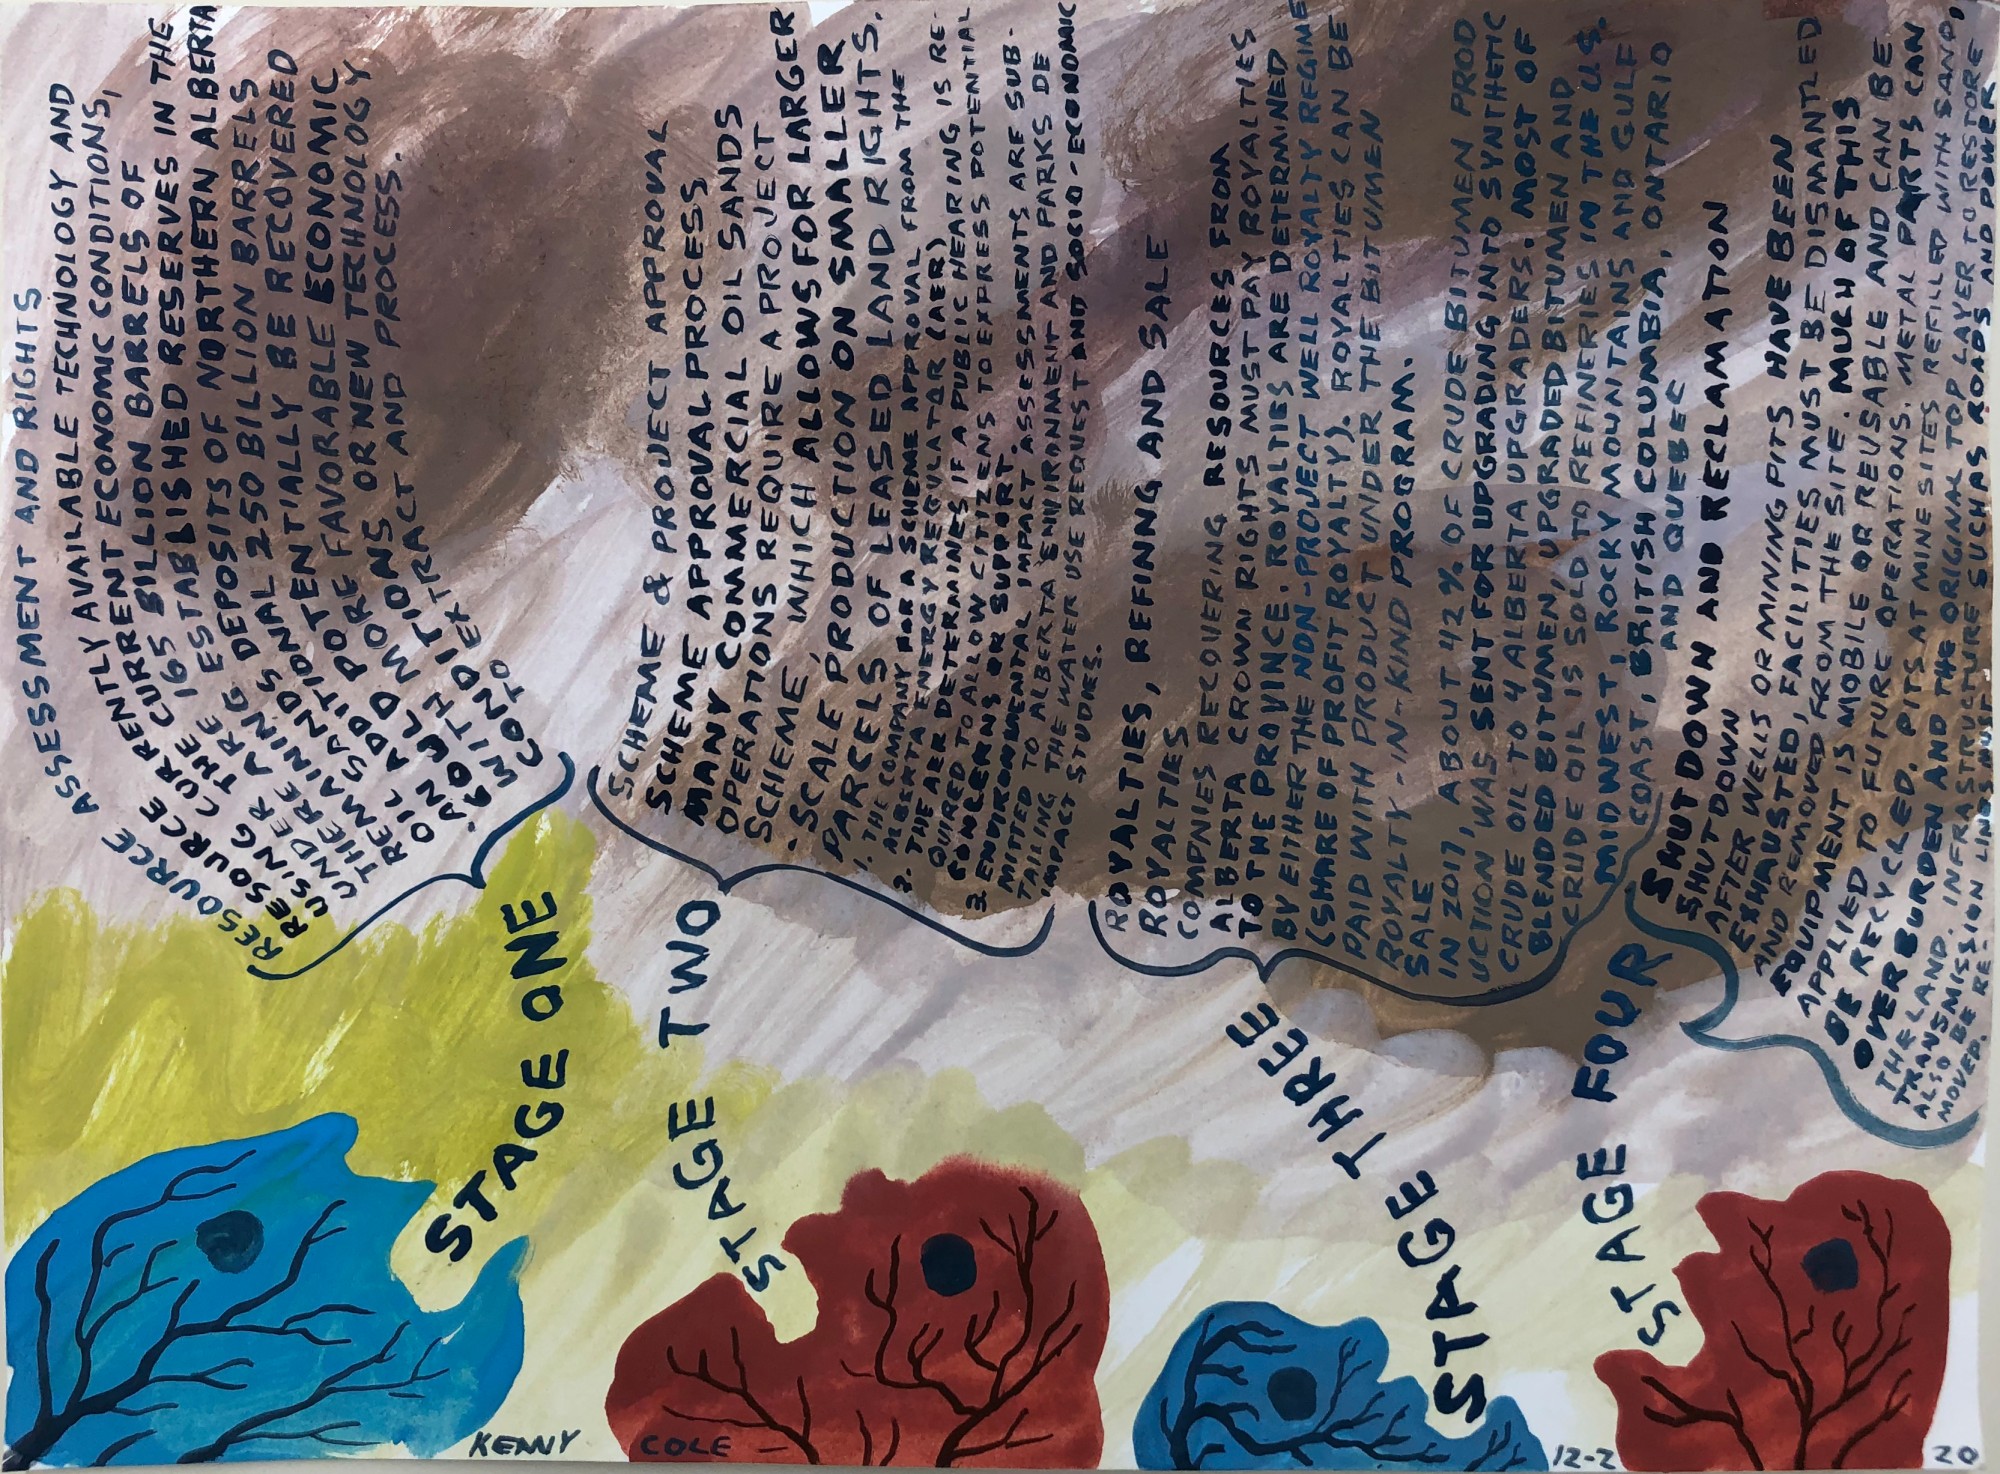 RESOURCE ASSESSMENT AND RIGHTS
RESOURCE
USING CURRENTLY AVAILABLE TECHNOLOGY AND
UNDER THE CURRENT ECONOMIC CONDITIONS,
THERE ARE 165 BILLION BARRELS OF
REMAINING ESTABLISHED RESERVES IN THE
OIL SANDS DEPOSITS OF NORTHERN ALBERTA
AN ADDITIONAL 250 BILLION BARRELS
COULD POTENTIALLY BE RECOVERED
WITH MORE FAVORABLE ECONOMIC
CONDITIONS OR NEW TECHNOLOGY
TO EXTRACT AND PROCESS.
STAGE ONE
SCHEME & PROJECT APPROVAL
SCHEME APPROVAL PROCESS
MANY COMMERCIAL OIL SANDS
OPERATIONS REQUIRE A PROJECT
SCHEME, WHICH ALLOWS FOR LARGER
-SCALE PRODUCTION ON SMALLER
PARCELS OF LEASED LAND RIGHTS.
1. THE COMPANY FOR A SCHEME APPROVAL FROM THE
ALBERTA ENERGY REGULATOR (AER)
2. THE AER DETERMINES IF A PUBLIC HEARING IS RE-
QUIRED TO ALLOW CITIZENS TO EXPRESS POTENTIAL
CONCERNS OR SUPPORT.
3. ENVIRONMENTAL IMPART ASSESSMENTS ARE SUB-
MITTED TO ALBERTA ENVIRONMENT AND PARKS DE
TAILING THE WATER USE REQUEST AND SOCIO-ECONOMIC
IMPACT STUDIES.
STAGE TWO
ROYALTIES, REFINNG AND SALE
ROYALTIES
COMPNIES RECOVERING RESOURCES FROM
ALBERTA CROWN RIGHTS MUST PAY ROYALTIES
TO THE PROVINCE. ROYALTIES ARE DETERMINED
BY EITHER THE NON-PROJECT WELL ROYALTY REGIME
(SHARE OF PROFIT ROYALTY). ROYALTIES CAN BE
PAID WITH PRODUCT UNDER THE BITUMEN
ROYALTY-IN-KIND PROGRAM.
SALE
IN 2017, ABOUT 42% OF CRUDE BITUMEN PROD
UCTION WAS SENT FOR UPGRADING INTO SYNTHETIC
CRUDE OIL TO 4 ALBERTA UPGRADERS. MOST OF
BLENDED BITUMEN, UPGRADED BITUMEN AND
CRUDE OIL IS SOLD TO REFINERIES IN THE U.S.
MIDWEST, ROCKY MOUNTAINS AND GULF
COAST, BRITISH COLUMBIA, ONTARIO
AND QUEBEC
STAGE THREE
SHUTDOWN AND RECLAMATION
SHUTDOWN
AFTER WELLS OR MINING PITS HAVE BEEN
EXHAUSTED, FACILITIES MUST BE DISMANTLED
AND REMOVED FROM THE SITE. MUCH OF THIS
EQUIPMENT IS MOBILE OR REUSABLE AND CAN BE
APPLIED TO FUTURE OPERATIONS. METAL PARTS CAN
BE RECYCLED. PITS AT MINE SITES REFILLED WITH SAND,
OVERBURDEN AND THE ORIGINAL TOP LAYER TO RESTORE
THE LAND. INFRASTRUCTURE SUCH AS ROADS AND POWER
TRANSMISSION LINES MUST
ALSO BE RE-
MOVED.
STAGE FOUR
KENNY COLE - 12-2 20